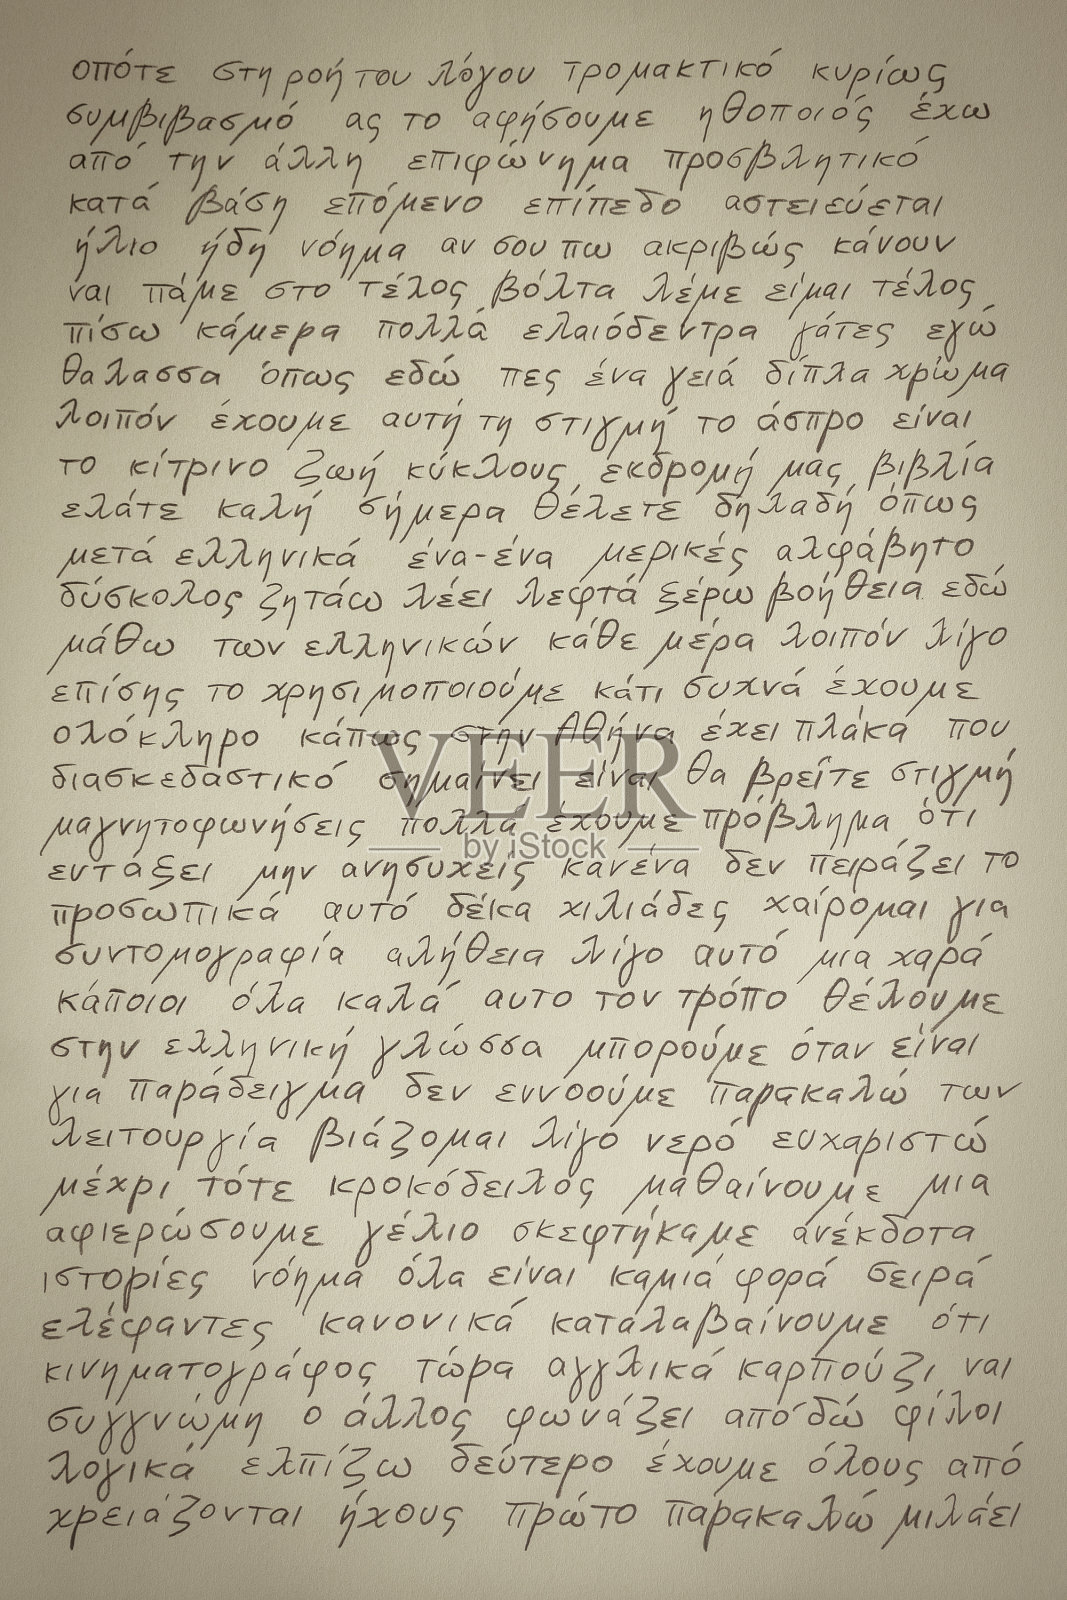 οπότε στη ροή του λόγου τρομακτικό κυρίως
συμβιβασμό ας το αφήσουμε ηθοποιός έχω
από την άλλη επιφώνημα προσβλητικό
κατά βάση επόμενο επίπεδο αστειεύεται
ήλιο ήδη νόημα αν σου πω ακριβώς κάνουν
ναι πάμε στο τέλος βόλτα λέμε είμαι τέλος
πίσω κάμερα πολλά ελαιόδεντρα γάτες εγώ
θαλασσα όπως εδώ πες ένα γειά δίπλα χρώμα
λοιπόν έχουμε αυτή τη στιγμή το άσπρο είναι
το κίτρινο ζωή κύκλους εκδρομή μας βιβλία
ελάτε καλή σήμερα θέλετε δηλαδή όπως
μετά ελληνικά ένα-ένα μερικές αλφάβητο
δύσκολος ζητάω λέει λεφτά ξέρω βοήθεια εδώ
μάθω των ελληνικών κάθε μέρα λοιπόν λίγο
επίσης το χρησιμοποιούμε κάτι συχνά έχουμε
ολόκληρο κάπως στην Αθήνα έχει πλάκα που
διασκεδαστικό σημαίνει είναι θα βρείτε στιγμή
μαγνητοφωνήσεις πολλά έχουμε πρόβλημα ότι
VEER
by iStock
εντάξει μην ανησυχείς κανένα δεν πειράζει το
προσωπικά αυτό δέκα χιλιάδες χαίρομαι για
συντομογραφία αλήθεια λίγο αυτό μια χαρά
κάποιοι όλα καλά αυτο τον τρόπο θέλουμε
στην ελληνική γλώσσα μπορούμε όταν είναι
για παράδειγμα δεν εννοούμε παρακαλώ των
λειτουργία βιάζομαι λίγο νερό ευχαριστώ
μέχρι τότε κροκόδειλος μαθαίνουμε μια
αφιερώσουμε γέλιο σκεφτήκαμε ανέκδοτα
ιστορίες νόημα όλα είναι καμιά φορά σειρά
ελέφαντες κανονικά καταλαβαίνουμε ότι
κινηματογράφος τώρα αγγλικά καρπούζι ναι
συγγνώμη ο άλλος φωνάζει από δώ φίλοι
λογικά ελπίζω δεύτερο έχουμε όλους από
χρειάζονται ήχους πρώτο παρακαλώ μιλάει